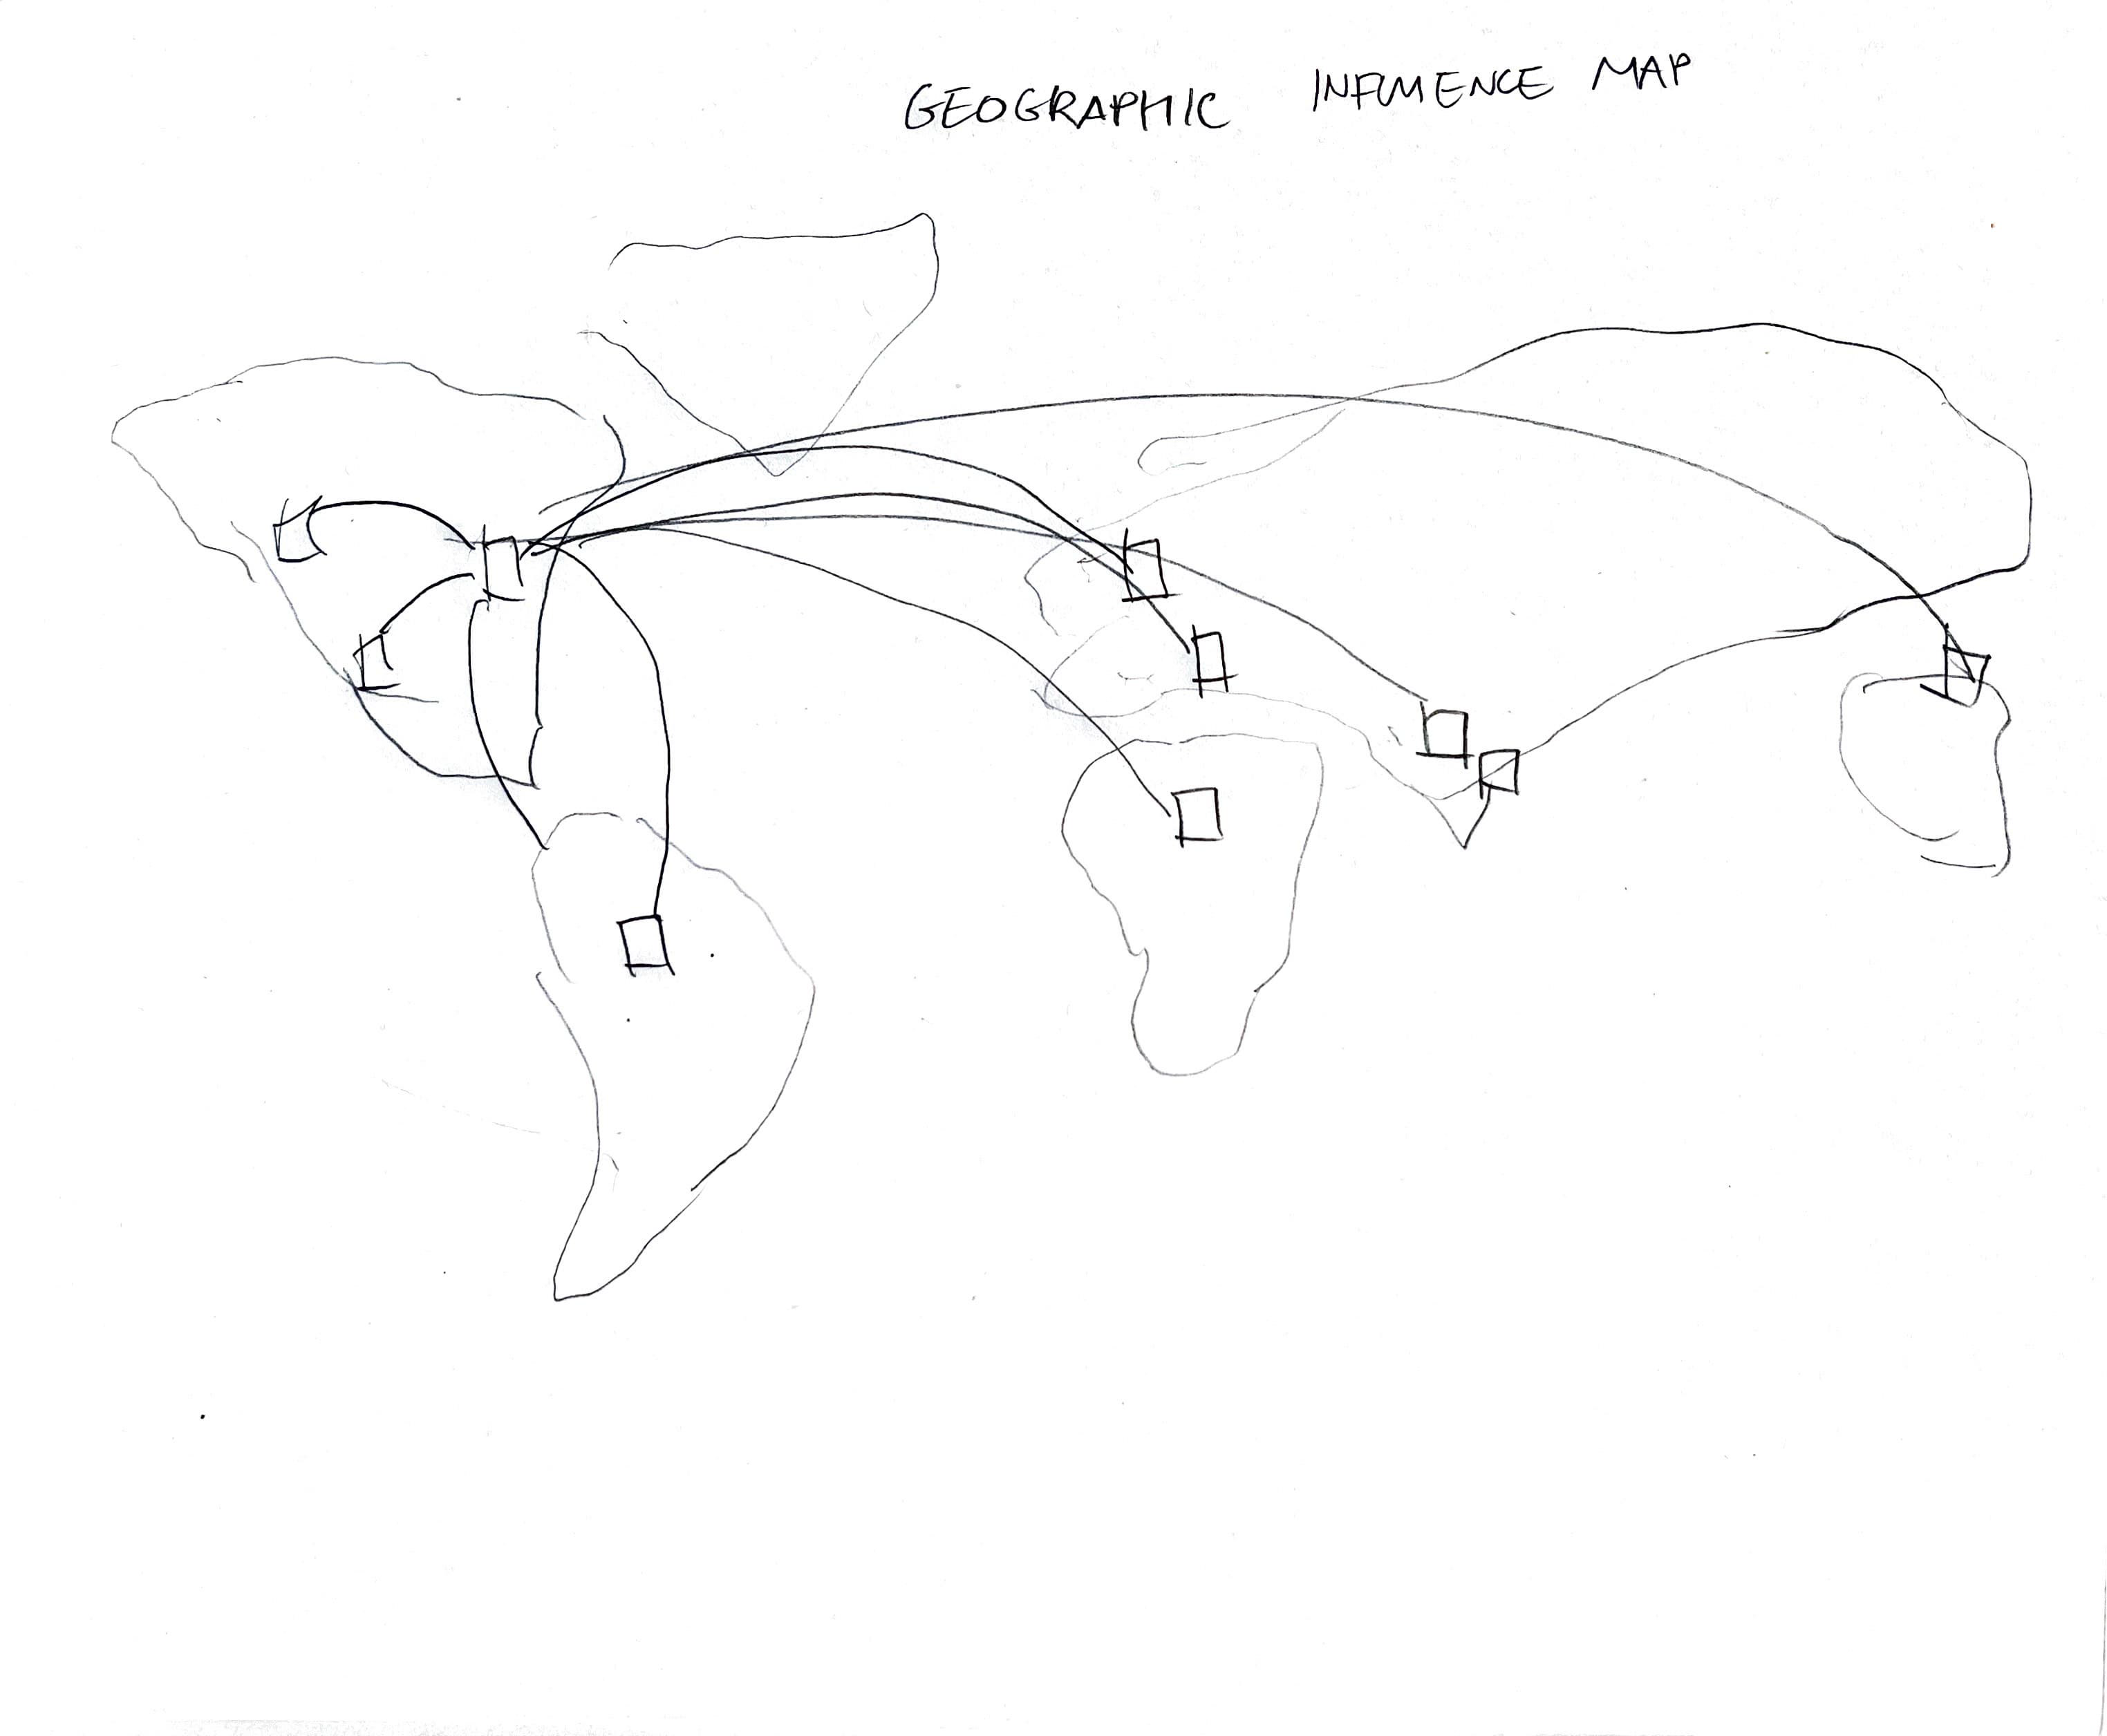 GEOGRAPHIC INFLUENCE MAP